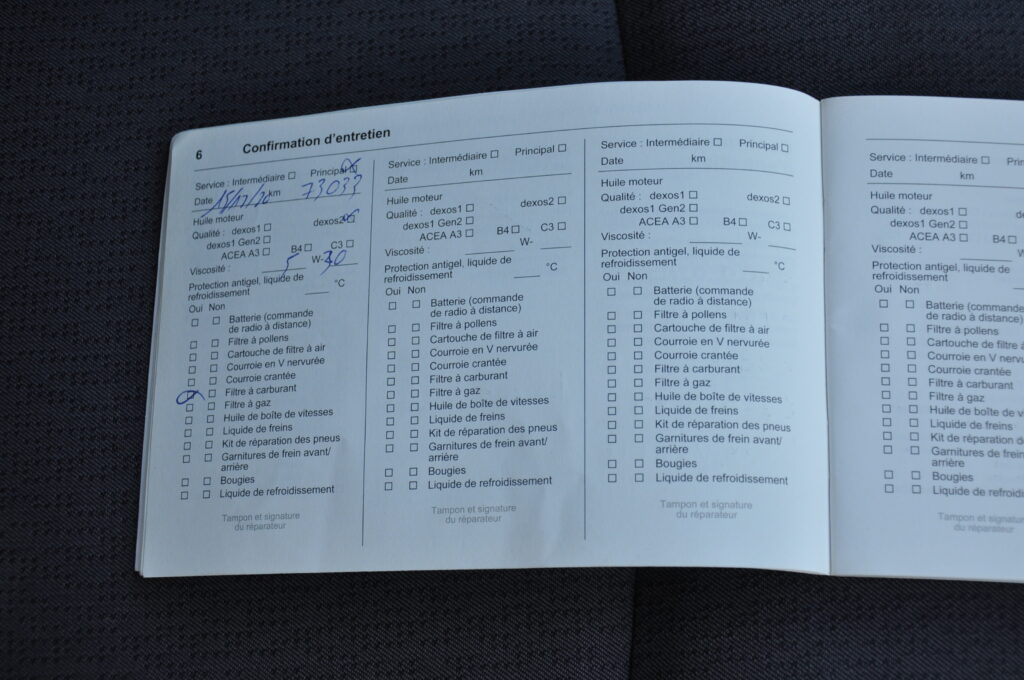 6 Confirmation d'entretien
Service : Intermédiaire Principal
Date 15/12/20 km 73033
Huile moteur
Qualité : dexos1 dexos2
dexos1 Gen2
ACEA A3 B4 C3
Viscosité : 5 W-30
Protection antigel, liquide de
refroidissement °C
Oui Non
Batterie (commande
de radio à distance)
Filtre à pollens
Cartouche de filtre à air
Courroie en V nervurée
Courroie crantée
Filtre à carburant
Filtre à gaz
Huile de boîte de vitesses
Liquide de freins
Kit de réparation des pneus
Garnitures de frein avant/
arrière
Bougies
Liquide de refroidissement
Tampon et signature
du réparateur
Service : Intermédiaire Principal
Date km
Huile moteur
Qualité : dexos1 dexos2
dexos1 Gen2
ACEA A3 B4 C3
Viscosité : W-
Protection antigel, liquide de
refroidissement °C
Oui Non
Batterie (commande
de radio à distance)
Filtre à pollens
Cartouche de filtre à air
Courroie en V nervurée
Courroie crantée
Filtre à carburant
Filtre à gaz
Huile de boîte de vitesses
Liquide de freins
Kit de réparation des pneus
Garnitures de frein avant/
arrière
Bougies
Liquide de refroidissement
Tampon et signature
du réparateur
Service : Intermédiaire Principal
Date km
Huile moteur
Qualité : dexos1 dexos2
dexos1 Gen2
ACEA A3 B4 C3
Viscosité : W-
Protection antigel, liquide de
refroidissement °C
Oui Non
Batterie (commande
de radio à distance)
Filtre à pollens
Cartouche de filtre à air
Courroie en V nervurée
Courroie crantée
Filtre à carburant
Filtre à gaz
Huile de boîte de vitesses
Liquide de freins
Kit de réparation des pneus
Garnitures de frein avant/
arrière
Bougies
Liquide de refroidissement
Tampon et signature
du réparateur
Service : Intermédiaire
Date km
Huile moteur
Qualité : dexos1
dexos1 Gen2
ACEA A3 B4
Viscosité :
Protection antigel, liquide
refroidissement
Oui Non
Batterie (commande
de radio à distance)
Filtre à pollens
Cartouche de filtre à
Courroie en V nervurée
Courroie crantée
Filtre à carburant
Filtre à gaz
Huile de boîte de
Liquide de freins
Kit de réparation
Garnitures de frein
arrière
Bougies
Liquide de
Tampon et
du réparateur